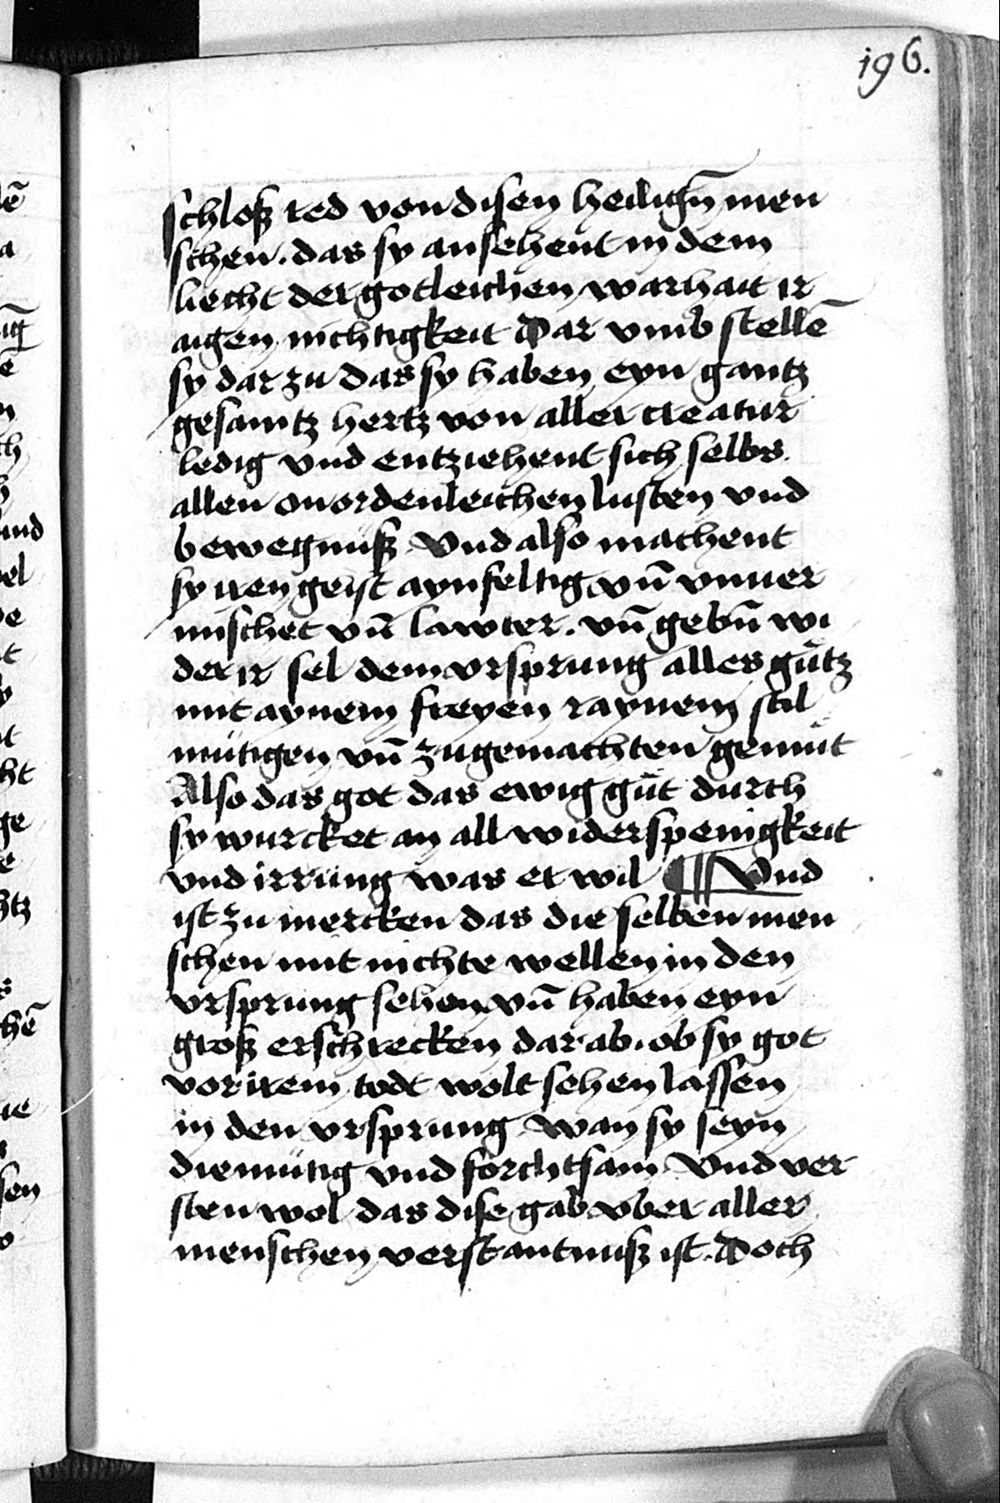 196.
schloß red von disen heilign̄ men
schen. das sy ansehent in dem
liecht der gotleichen warhait ir
aigen nichtigkeit Dar vmb stellē
sy dar zu das sy haben eyn gantz
gesamtz hertz von aller creatur
ledig vnd entziehent sich selbs
allen onordenleichen lusten vnd
bewegnuß Vnd also machent
sy iren geist aynfeltig vn̄ vnuer
mischet vn̄ lawter. vn̄ gebn̄ wi
der ir sel dem vrsprung alles gütz
mit aynem freyen raynem stil
mütigen vn̄ zugemachten gemüt
Also das got das ewig güt durch
sy wurcket an all widerspenigkeit
vnd irrung was er wil ¶ Vnd
ist zu mercken das die selben men
schen mit nichte wellen in den
vrsprung sehen vn̄ haben eyn
groß erschrecken dar ab. ob sy got
vor irem todt wolt sehen lassen
in den vrsprung wan sy seyn
diemütig vnd forchtsam Vnd ver
sten wol das dise gab vber aller
menschen verstantnuß ist. Doch